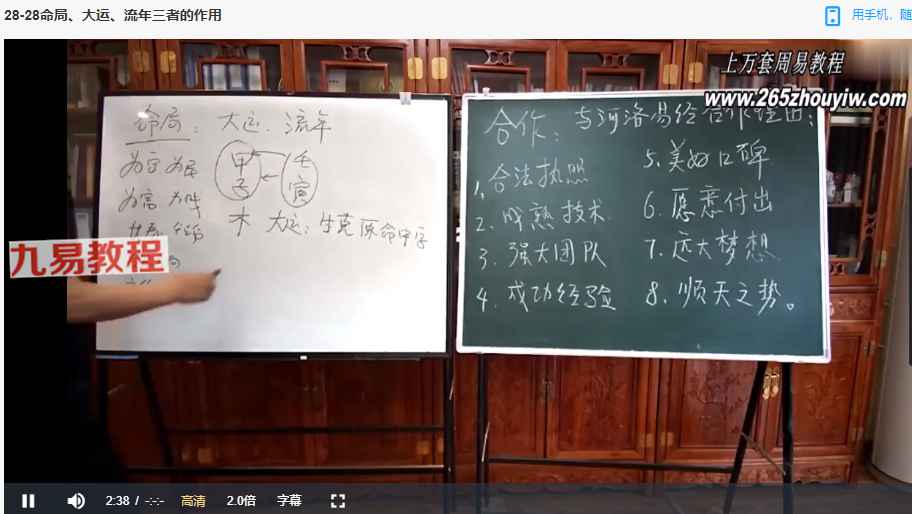 28-28命局、大运、流年三者的作用
用手机，随
上万套周易教程
www.265zhouyiw.com
命局：大运．流年
为官 为民
甲 壬
子 寅
为富 为
木 大运：生克原命中字
九易教程
合作：与河洛易经合作理由：
1. 合法执照
2. 成熟技术
3. 强大团队
4. 成功经验
5. 美好口碑
6. 愿意付出
7. 远大梦想
8. 顺天之势。
2:38 / -:-:- 高清 2.0倍 字幕